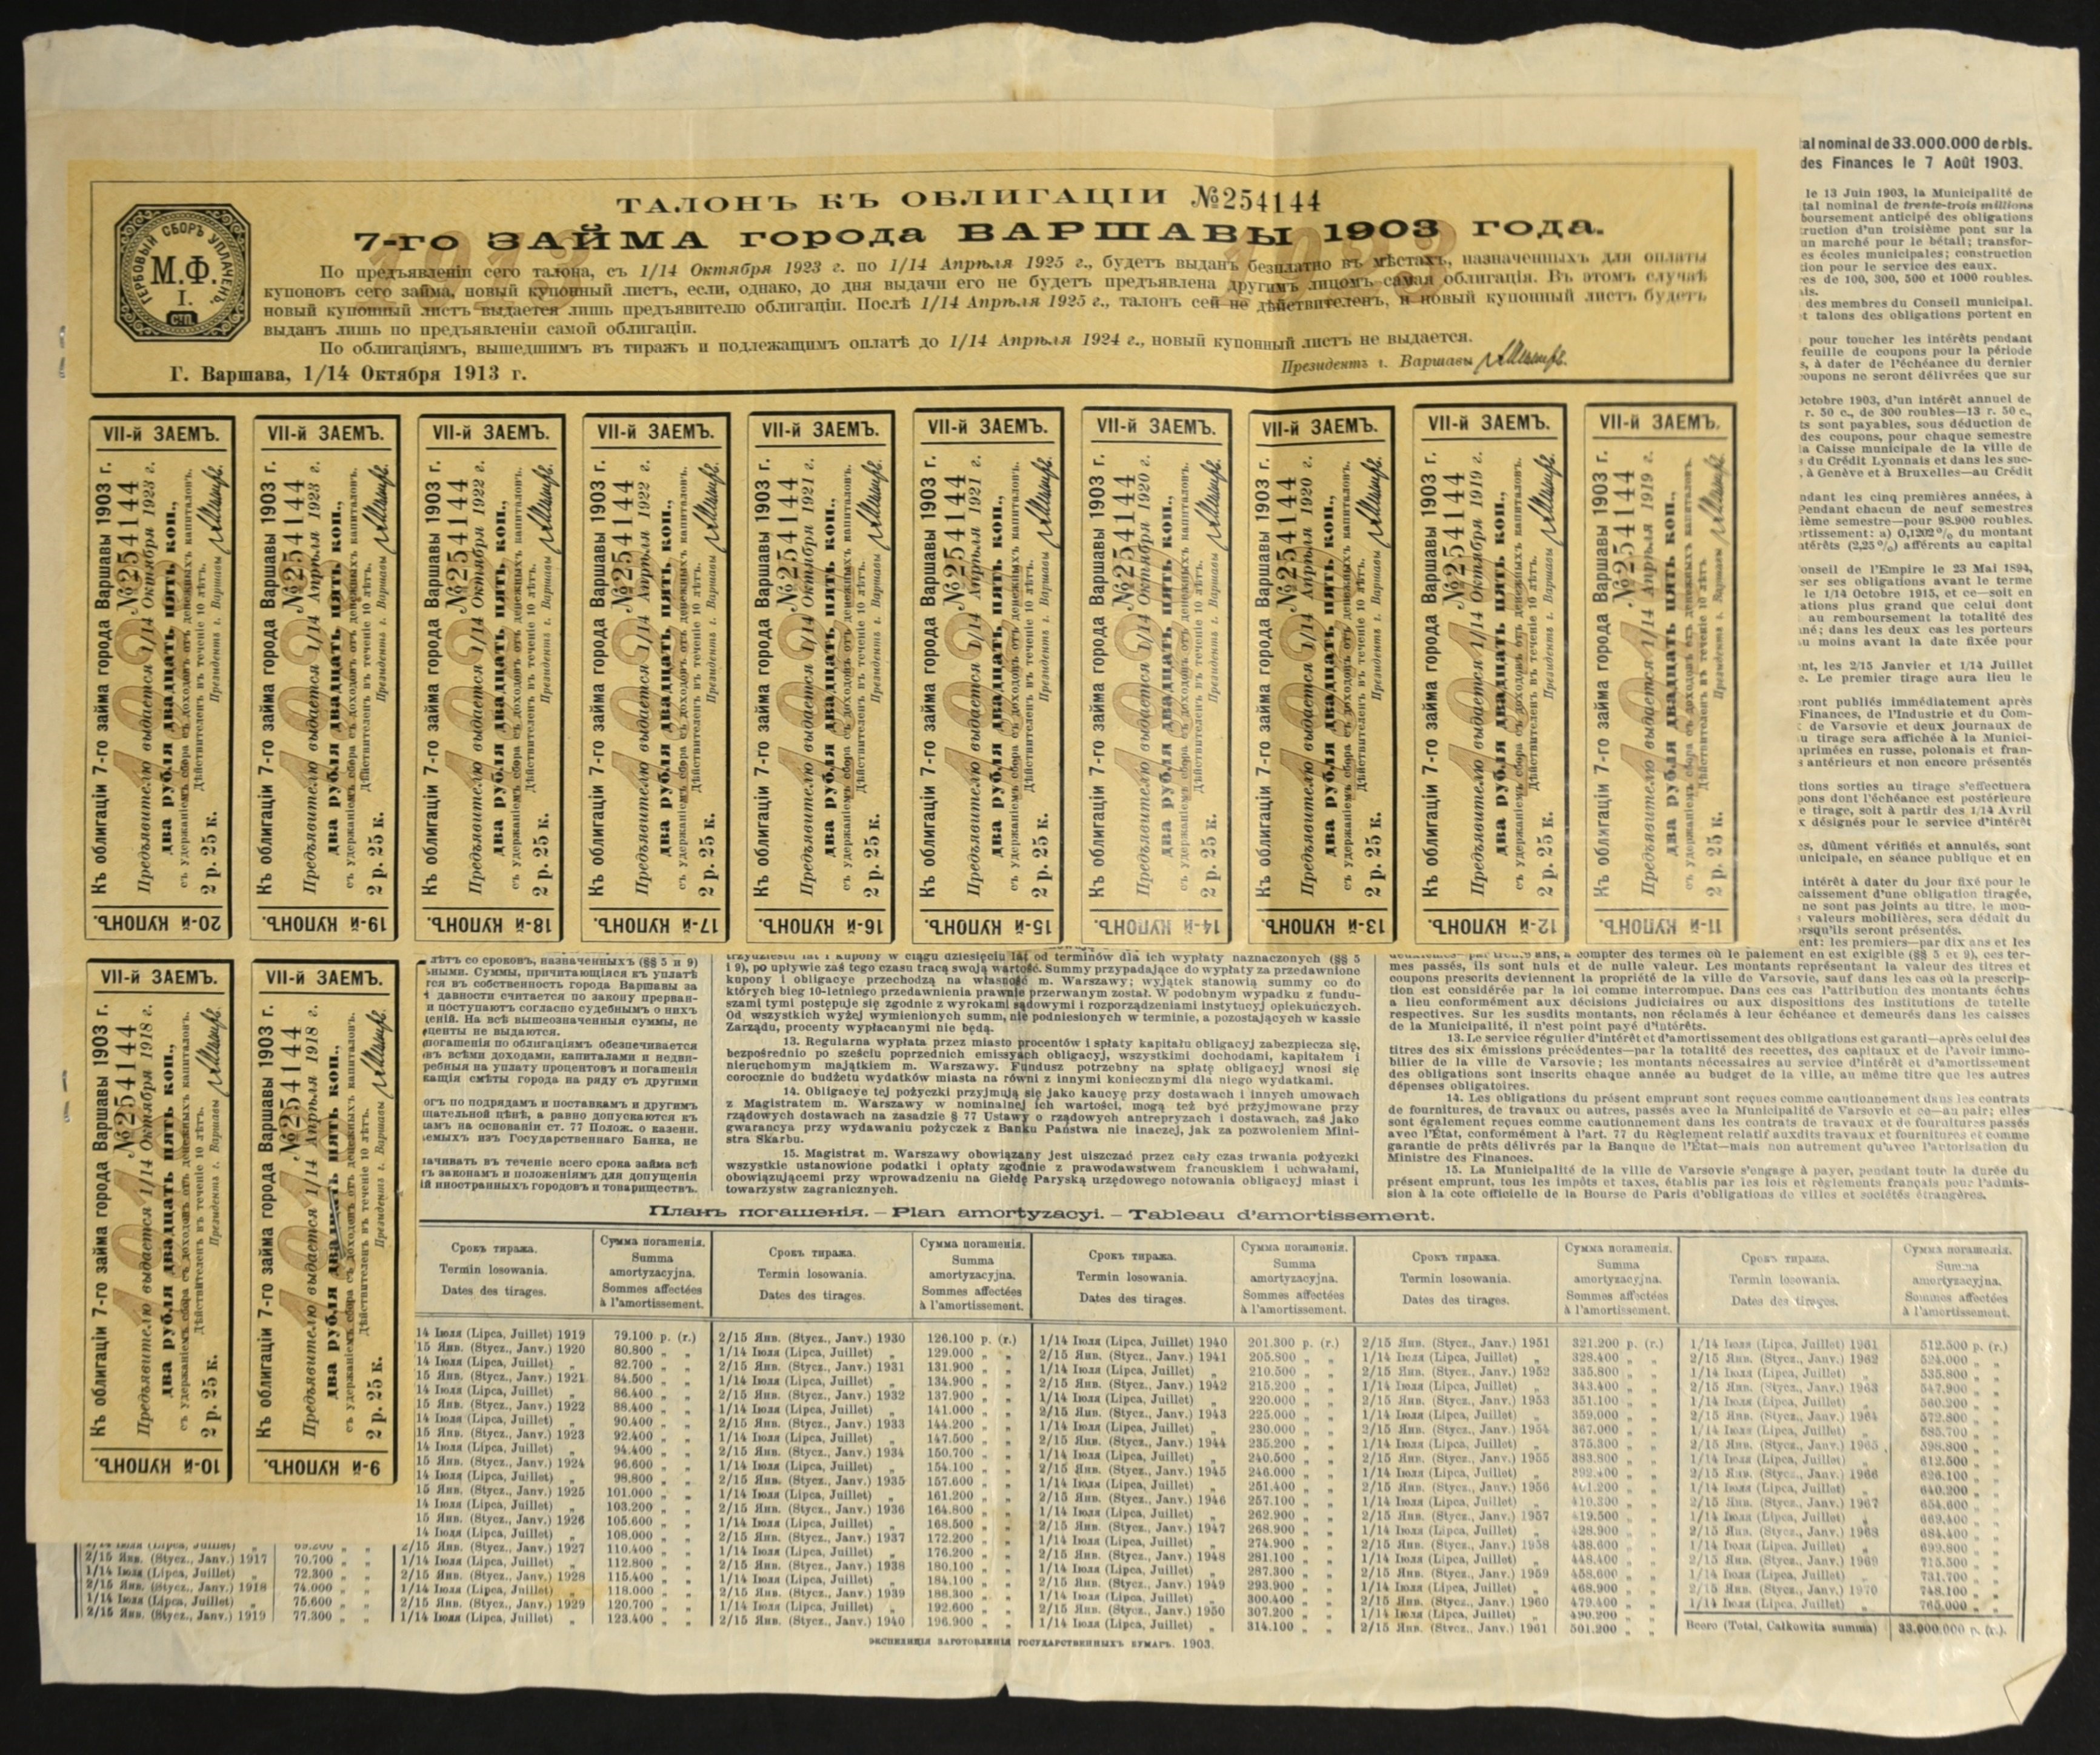 ТАЛОНЪ КЪ ОБЛИГАЦІИ №254144
7-го ЗАЙМА города ВАРШАВЫ 1903 года.
По предъявленіи сего талона, съ 1/14 Октября 1923 г. по 1/14 Апрѣля 1925 г., будетъ выданъ безплатно въ мѣстахъ, назначенныхъ для оплаты
купоновъ сего займа, новый купонный листъ, если, однако, до дня выдачи его не будетъ предъявлена другимъ лицомъ самая облигація. Въ этомъ случаѣ
новый купонный листъ выдается лишь предъявителю облигаціи. Послѣ 1/14 Апрѣля 1925 г., талонъ сей не дѣйствителенъ, и новый купонный листъ будетъ
выданъ лишь по предъявленіи самой облигаціи.
По облигаціямъ, вышедшимъ въ тиражъ и подлежащимъ оплатѣ до 1/14 Апрѣля 1924 г., новый купонный листъ не выдается.
Г. Варшава, 1/14 Октября 1913 г.
Президентъ г. Варшавы
ГЕРБОВЫЙ СБОРЪ УПЛАЧЕНЪ.
М.Ф.
I.
СТП.
1913
1923
VII-й ЗАЕМЪ.
Къ облигаціи 7-го займа города Варшавы 1903 г.
№254144
Предъявителю выдается 1/14 Октября 1923 г.
два рубля двадцать пять коп.,
съ удержаніемъ сбора съ доходовъ отъ денежныхъ капиталовъ.
Дѣйствителенъ въ теченіе 10 лѣтъ.
2 р. 25 к. Президентъ г. Варшавы
20-й КУПОНЪ.
VII-й ЗАЕМЪ.
Къ облигаціи 7-го займа города Варшавы 1903 г.
№254144
Предъявителю выдается 1/14 Апрѣля 1923 г.
два рубля двадцать пять коп.,
съ удержаніемъ сбора съ доходовъ отъ денежныхъ капиталовъ.
Дѣйствителенъ въ теченіе 10 лѣтъ.
2 р. 25 к. Президентъ г. Варшавы
19-й КУПОНЪ.
VII-й ЗАЕМЪ.
Къ облигаціи 7-го займа города Варшавы 1903 г.
№254144
Предъявителю выдается 1/14 Октября 1922 г.
два рубля двадцать пять коп.,
съ удержаніемъ сбора съ доходовъ отъ денежныхъ капиталовъ.
Дѣйствителенъ въ теченіе 10 лѣтъ.
2 р. 25 к. Президентъ г. Варшавы
18-й КУПОНЪ.
VII-й ЗАЕМЪ.
Къ облигаціи 7-го займа города Варшавы 1903 г.
№254144
Предъявителю выдается 1/14 Апрѣля 1922 г.
два рубля двадцать пять коп.,
съ удержаніемъ сбора съ доходовъ отъ денежныхъ капиталовъ.
Дѣйствителенъ въ теченіе 10 лѣтъ.
2 р. 25 к. Президентъ г. Варшавы
17-й КУПОНЪ.
VII-й ЗАЕМЪ.
Къ облигаціи 7-го займа города Варшавы 1903 г.
№254144
Предъявителю выдается 1/14 Октября 1921 г.
два рубля двадцать пять коп.,
съ удержаніемъ сбора съ доходовъ отъ денежныхъ капиталовъ.
Дѣйствителенъ въ теченіе 10 лѣтъ.
2 р. 25 к. Президентъ г. Варшавы
16-й КУПОНЪ.
VII-й ЗАЕМЪ.
Къ облигаціи 7-го займа города Варшавы 1903 г.
№254144
Предъявителю выдается 1/14 Апрѣля 1921 г.
два рубля двадцать пять коп.,
съ удержаніемъ сбора съ доходовъ отъ денежныхъ капиталовъ.
Дѣйствителенъ въ теченіе 10 лѣтъ.
2 р. 25 к. Президентъ г. Варшавы
15-й КУПОНЪ.
VII-й ЗАЕМЪ.
Къ облигаціи 7-го займа города Варшавы 1903 г.
№254144
Предъявителю выдается 1/14 Октября 1920 г.
два рубля двадцать пять коп.,
съ удержаніемъ сбора съ доходовъ отъ денежныхъ капиталовъ.
Дѣйствителенъ въ теченіе 10 лѣтъ.
2 р. 25 к. Президентъ г. Варшавы
14-й КУПОНЪ.
VII-й ЗАЕМЪ.
Къ облигаціи 7-го займа города Варшавы 1903 г.
№254144
Предъявителю выдается 1/14 Апрѣля 1920 г.
два рубля двадцать пять коп.,
съ удержаніемъ сбора съ доходовъ отъ денежныхъ капиталовъ.
Дѣйствителенъ въ теченіе 10 лѣтъ.
2 р. 25 к. Президентъ г. Варшавы
13-й КУПОНЪ.
VII-й ЗАЕМЪ.
Къ облигаціи 7-го займа города Варшавы 1903 г.
№254144
Предъявителю выдается 1/14 Октября 1919 г.
два рубля двадцать пять коп.,
съ удержаніемъ сбора съ доходовъ отъ денежныхъ капиталовъ.
Дѣйствителенъ въ теченіе 10 лѣтъ.
2 р. 25 к. Президентъ г. Варшавы
12-й КУПОНЪ.
VII-й ЗАЕМЪ.
Къ облигаціи 7-го займа города Варшавы 1903 г.
№254144
Предъявителю выдается 1/14 Апрѣля 1919 г.
два рубля двадцать пять коп.,
съ удержаніемъ сбора съ доходовъ отъ денежныхъ капиталовъ.
Дѣйствителенъ въ теченіе 10 лѣтъ.
2 р. 25 к. Президентъ г. Варшавы
11-й КУПОНЪ.
VII-й ЗАЕМЪ.
Къ облигаціи 7-го займа города Варшавы 1903 г.
№254144
Предъявителю выдается 1/14 Октября 1918 г.
два рубля двадцать пять коп.,
съ удержаніемъ сбора съ доходовъ отъ денежныхъ капиталовъ.
Дѣйствителенъ въ теченіе 10 лѣтъ.
2 р. 25 к. Президентъ г. Варшавы
10-й КУПОНЪ.
VII-й ЗАЕМЪ.
Къ облигаціи 7-го займа города Варшавы 1903 г.
№254144
Предъявителю выдается 1/14 Апрѣля 1918 г.
два рубля двадцать пять коп.,
съ удержаніемъ сбора съ доходовъ отъ денежныхъ капиталовъ.
Дѣйствителенъ въ теченіе 10 лѣтъ.
2 р. 25 к. Президентъ г. Варшавы
9-й КУПОНЪ.
al nominal de 33.000.000 de rbls.
des Finances le 7 Août 1903.
le 13 Juin 1903, la Municipalité de
tal nominal de trente-trois millions
boursement anticipé des obligations
ruction d'un troisième pont sur la
un marché pour le bétail; transfor-
es écoles municipales; construction
ion pour le service des eaux.
es de 100, 300, 500 et 1000 roubles.
des membres du Conseil municipal.
t talons des obligations portent en
pour toucher les intérêts pendant
feuille de coupons pour la période
s, à dater de l'échéance du dernier
coupons ne seront délivrées que sur
Octobre 1903, d'un intérêt annuel de
r. 50 c., de 300 roubles—13 r. 50 c.,
ts sont payables, sous déduction de
des coupons, pour chaque semestre
a Caisse municipale de la ville de
du Crédit Lyonnais et dans les suc-
, à Genève et à Bruxelles—au Crédit
ndant les cinq premières années, à
Pendant chacun de neuf semestres
ième semestre—pour 98.900 roubles.
ortissement: a) 0,1202% du montant
ntérêts (2,25%) afférents au capital
onseil de l'Empire le 23 Mai 1894,
ser ses obligations avant le terme
le 1/14 Octobre 1915, et ce—soit en
ations plus grand que celui dont
au remboursement la totalité des
né; dans les deux cas les porteurs
u moins avant la date fixée pour
nt, les 2/15 Janvier et 1/14 Juillet
e. Le premier tirage aura lieu le
ront publiés immédiatement après
Finances, de l'Industrie et du Com-
de Varsovie et deux journaux de
u tirage sera affichée à la Munici-
mprimées en russe, polonais et fran-
s antérieurs et non encore présentés
tions sorties au tirage s'effectuera
pons dont l'échéance est postérieure
e tirage, soit à partir des 1/14 Avril
x désignés pour le service d'intérêt
es, dûment vérifiés et annulés, sont
unicipale, en séance publique et en
intérêt à dater du jour fixé pour le
caissement d'une obligation tiragée,
ne sont pas joints au titre, le mon-
valeurs mobilières, sera déduit du
orsqu'ils seront présentés.
ent: les premiers—par dix ans et les
лѣтъ со сроковъ, назначенныхъ (§§ 5 и 9)
ными. Суммы, причитающіяся къ уплатѣ
тся въ собственность города Варшавы за
давности считается по закону прерван-
и поступаютъ согласно судебнымъ о нихъ
деній. На всѣ вышеозначенныя суммы, не
центы не выдаются.
погашенія по облигаціямъ обезпечивается
въ всѣми доходами, капиталами и недви-
ребныя на уплату процентовъ и погашенія
кація смѣты города на ряду съ другими
огъ по подрядамъ и поставкамъ и другимъ
щательной цѣнѣ, а равно допускаются къ
амъ на основаніи ст. 77 Полож. о казен.
емыхъ изъ Государственнаго Банка, не
лачивать въ теченіе всего срока займа всѣ
ъ законамъ и положеніямъ для допущенія
ій иностранныхъ городовъ и товариществъ.
trzydziestu lat i kupony w ciągu dziesięciu lat od terminów dla ich wypłaty naznaczonych (§§ 5
i 9), po upływie zaś tego czasu tracą swoją wartość. Summy przypadające do wypłaty za przedawnione
kupony i obligacye przechodzą na własność m. Warszawy; wyjątek stanowią summy co do
których bieg 10-letniego przedawnienia prawnie przerwanym został. W podobnym wypadku z fundu-
szami tymi postępuje się zgodnie z wyrokami sądowymi i rozporządzeniami instytucyj opiekuńczych.
Od wszystkich wyżej wymienionych summ, nie podniesionych w terminie, a pozostających w kassie
Zarządu, procenty wypłacanymi nie będą.
13. Regularna wypłata przez miasto procentów i spłaty kapitału obligacyj zabezpiecza się,
bezpośrednio po sześciu poprzednich emissyach obligacyj, wszystkimi dochodami, kapitałem i
nieruchomym majątkiem m. Warszawy. Fundusz potrzebny na spłatę obligacyj wnosi się
corocznie do budżetu wydatków miasta na równi z innymi koniecznymi dla niego wydatkami.
14. Obligacye tej pożyczki przyjmują się jako kaucye przy dostawach i innych umowach
z Magistratem m. Warszawy w nominalnej ich wartości, mogą też być przyjmowane przy
rządowych dostawach na zasadzie § 77 Ustawy o rządowych antrepryzach i dostawach, zaś jako
gwarancya przy wydawaniu pożyczek z Banku Państwa nie inaczej, jak za pozwoleniem Mini-
stra Skarbu.
15. Magistrat m. Warszawy obowiązany jest uiszczać przez cały czas trwania pożyczki
wszystkie ustanowione podatki i opłaty zgodnie z prawodawstwem francuskiem i uchwałami,
obowiązującemi przy wprowadzeniu na Giełdę Paryską urzędowego notowania obligacyj miast i
towarzystw zagranicznych.
ans, à compter des termes où le paiement en est exigible (§§ 5 et 9), ces ter-
mes passés, ils sont nuls et de nulle valeur. Les montants représentant la valeur des titres et
coupons prescrits deviennent la propriété de la ville de Varsovie, sauf dans les cas où la prescrip-
tion est considérée par la loi comme interrompue. Dans ces cas l'attribution des montants échus
a lieu conformément aux décisions judiciaires ou aux dispositions des institutions de tutelle
respectives. Sur les susdits montants, non réclamés à leur échéance et demeurés dans les caisses
de la Municipalité, il n'est point payé d'intérêts.
13. Le service régulier d'intérêt et d'amortissement des obligations est garanti—après celui des
titres des six émissions précédentes—par la totalité des recettes, des capitaux et de l'avoir immo-
bilier de la ville de Varsovie; les montants nécessaires au service d'intérêt et d'amortissement
des obligations sont inscrits chaque année au budget de la ville, au même titre que les autres
dépenses obligatoires.
14. Les obligations du présent emprunt sont reçues comme cautionnement dans les contrats
de fournitures, de travaux ou autres, passés avec la Municipalité de Varsovie et ce—au pair; elles
sont également reçues comme cautionnement dans les contrats de travaux et de fournitures passés
avec l'État, conformément à l'art. 77 du Règlement relatif auxdits travaux et fournitures et comme
garantie de prêts délivrés par la Banque de l'État—mais non autrement qu'avec l'autorisation du
Ministre des Finances.
15. La Municipalité de la ville de Varsovie s'engage à payer, pendant toute la durée du
présent emprunt, tous les impôts et taxes, établis par les lois et règlements français pour l'admis-
sion à la cote officielle de la Bourse de Paris d'obligations de villes et sociétés étrangères.
Планъ погашенія. — Plan amortyzacyi. — Tableau d'amortissement.
Срокъ тиража.
Termin losowania.
Dates des tirages.
Сумма погашенія.
Summa
amortyzacyjna.
Sommes affectées
à l'amortissement.
Срокъ тиража.
Termin losowania.
Dates des tirages.
Сумма погашенія.
Summa
amortyzacyjna.
Sommes affectées
à l'amortissement.
Срокъ тиража.
Termin losowania.
Dates des tirages.
Сумма погашенія.
Summa
amortyzacyjna.
Sommes affectées
à l'amortissement.
Срокъ тиража.
Termin losowania.
Dates des tirages.
Сумма погашенія.
Summa
amortyzacyjna.
Sommes affectées
à l'amortissement.
Срокъ тиража.
Termin losowania.
Dates des tirages.
Сумма погашенія.
Summa
amortyzacyjna.
Sommes affectées
à l'amortissement.
2/15 Янв. (Stycz., Janv.) 1917 70.700 „ „
1/14 Іюля (Lipca, Juillet) „ 72.300 „ „
2/15 Янв. (Stycz., Janv.) 1918 74.000 „ „
1/14 Іюля (Lipca, Juillet) „ 75.600 „ „
2/15 Янв. (Stycz., Janv.) 1919 77.300 „ „
14 Іюля (Lipca, Juillet) 1919 79.100 р. (r.)
15 Янв. (Stycz., Janv.) 1920 80.800 „ „
14 Іюля (Lipca, Juillet) „ 82.700 „ „
15 Янв. (Stycz., Janv.) 1921 84.500 „ „
14 Іюля (Lipca, Juillet) „ 86.400 „ „
15 Янв. (Stycz., Janv.) 1922 88.400 „ „
14 Іюля (Lipca, Juillet) „ 90.400 „ „
15 Янв. (Stycz., Janv.) 1923 92.400 „ „
14 Іюля (Lipca, Juillet) „ 94.400 „ „
15 Янв. (Stycz., Janv.) 1924 96.600 „ „
14 Іюля (Lipca, Juillet) „ 98.800 „ „
15 Янв. (Stycz., Janv.) 1925 101.000 „ „
14 Іюля (Lipca, Juillet) „ 103.200 „ „
15 Янв. (Stycz., Janv.) 1926 105.600 „ „
14 Іюля (Lipca, Juillet) „ 108.000 „ „
2/15 Янв. (Stycz., Janv.) 1927 110.400 „ „
1/14 Іюля (Lipca, Juillet) „ 112.800 „ „
2/15 Янв. (Stycz., Janv.) 1928 115.400 „ „
1/14 Іюля (Lipca, Juillet) „ 118.000 „ „
2/15 Янв. (Stycz., Janv.) 1929 120.700 „ „
1/14 Іюля (Lipca, Juillet) „ 123.400 „ „
2/15 Янв. (Stycz., Janv.) 1930 126.100 р. (r.)
1/14 Іюля (Lipca, Juillet) „ 129.000 „ „
2/15 Янв. (Stycz., Janv.) 1931 131.900 „ „
1/14 Іюля (Lipca, Juillet) „ 134.900 „ „
2/15 Янв. (Stycz., Janv.) 1932 137.900 „ „
1/14 Іюля (Lipca, Juillet) „ 141.000 „ „
2/15 Янв. (Stycz., Janv.) 1933 144.200 „ „
1/14 Іюля (Lipca, Juillet) „ 147.500 „ „
2/15 Янв. (Stycz., Janv.) 1934 150.700 „ „
1/14 Іюля (Lipca, Juillet) „ 154.100 „ „
2/15 Янв. (Stycz., Janv.) 1935 157.600 „ „
1/14 Іюля (Lipca, Juillet) „ 161.200 „ „
2/15 Янв. (Stycz., Janv.) 1936 164.800 „ „
1/14 Іюля (Lipca, Juillet) „ 168.500 „ „
2/15 Янв. (Stycz., Janv.) 1937 172.200 „ „
1/14 Іюля (Lipca, Juillet) „ 176.200 „ „
2/15 Янв. (Stycz., Janv.) 1938 180.100 „ „
1/14 Іюля (Lipca, Juillet) „ 184.100 „ „
2/15 Янв. (Stycz., Janv.) 1939 188.300 „ „
1/14 Іюля (Lipca, Juillet) „ 192.600 „ „
2/15 Янв. (Stycz., Janv.) 1940 196.900 „ „
1/14 Іюля (Lipca, Juillet) 1940 201.300 р. (r.)
2/15 Янв. (Stycz., Janv.) 1941 205.800 „ „
1/14 Іюля (Lipca, Juillet) „ 210.500 „ „
2/15 Янв. (Stycz., Janv.) 1942 215.200 „ „
1/14 Іюля (Lipca, Juillet) „ 220.000 „ „
2/15 Янв. (Stycz., Janv.) 1943 225.000 „ „
1/14 Іюля (Lipca, Juillet) „ 230.000 „ „
2/15 Янв. (Stycz., Janv.) 1944 235.200 „ „
1/14 Іюля (Lipca, Juillet) „ 240.500 „ „
2/15 Янв. (Stycz., Janv.) 1945 246.000 „ „
1/14 Іюля (Lipca, Juillet) „ 251.400 „ „
2/15 Янв. (Stycz., Janv.) 1946 257.100 „ „
1/14 Іюля (Lipca, Juillet) „ 262.900 „ „
2/15 Янв. (Stycz., Janv.) 1947 268.900 „ „
1/14 Іюля (Lipca, Juillet) „ 274.900 „ „
2/15 Янв. (Stycz., Janv.) 1948 281.100 „ „
1/14 Іюля (Lipca, Juillet) „ 287.300 „ „
2/15 Янв. (Stycz., Janv.) 1949 293.900 „ „
1/14 Іюля (Lipca, Juillet) „ 300.400 „ „
2/15 Янв. (Stycz., Janv.) 1950 307.200 „ „
1/14 Іюля (Lipca, Juillet) „ 314.100 „ „
2/15 Янв. (Stycz., Janv.) 1951 321.200 р. (r.)
1/14 Іюля (Lipca, Juillet) „ 328.400 „ „
2/15 Янв. (Stycz., Janv.) 1952 335.800 „ „
1/14 Іюля (Lipca, Juillet) „ 343.400 „ „
2/15 Янв. (Stycz., Janv.) 1953 351.100 „ „
1/14 Іюля (Lipca, Juillet) „ 359.000 „ „
2/15 Янв. (Stycz., Janv.) 1954 367.000 „ „
1/14 Іюля (Lipca, Juillet) „ 375.300 „ „
2/15 Янв. (Stycz., Janv.) 1955 383.800 „ „
1/14 Іюля (Lipca, Juillet) „ 392.400 „ „
2/15 Янв. (Stycz., Janv.) 1956 401.200 „ „
1/14 Іюля (Lipca, Juillet) „ 410.300 „ „
2/15 Янв. (Stycz., Janv.) 1957 419.500 „ „
1/14 Іюля (Lipca, Juillet) „ 428.900 „ „
2/15 Янв. (Stycz., Janv.) 1958 438.600 „ „
1/14 Іюля (Lipca, Juillet) „ 448.400 „ „
2/15 Янв. (Stycz., Janv.) 1959 458.600 „ „
1/14 Іюля (Lipca, Juillet) „ 468.900 „ „
2/15 Янв. (Stycz., Janv.) 1960 479.400 „ „
1/14 Іюля (Lipca, Juillet) „ 490.200 „ „
2/15 Янв. (Stycz., Janv.) 1961 501.200 „ „
1/14 Іюля (Lipca, Juillet) 1961 512.500 р. (r.)
2/15 Янв. (Stycz., Janv.) 1962 524.000 „ „
1/14 Іюля (Lipca, Juillet) „ 535.800 „ „
2/15 Янв. (Stycz., Janv.) 1963 547.900 „ „
1/14 Іюля (Lipca, Juillet) „ 560.200 „ „
2/15 Янв. (Stycz., Janv.) 1964 572.800 „ „
1/14 Іюля (Lipca, Juillet) „ 585.700 „ „
2/15 Янв. (Stycz., Janv.) 1965 598.800 „ „
1/14 Іюля (Lipca, Juillet) „ 612.500 „ „
2/15 Янв. (Stycz., Janv.) 1966 626.100 „ „
1/14 Іюля (Lipca, Juillet) „ 640.200 „ „
2/15 Янв. (Stycz., Janv.) 1967 654.600 „ „
1/14 Іюля (Lipca, Juillet) „ 669.400 „ „
2/15 Янв. (Stycz., Janv.) 1968 684.400 „ „
1/14 Іюля (Lipca, Juillet) „ 699.800 „ „
2/15 Янв. (Stycz., Janv.) 1969 715.500 „ „
1/14 Іюля (Lipca, Juillet) „ 731.700 „ „
2/15 Янв. (Stycz., Janv.) 1970 748.100 „ „
1/14 Іюля (Lipca, Juillet) „ 765.000 „ „
Всего (Total, Całkowita summa) 33.000.000 р. (r.).
ЭКСПЕДИЦІЯ ЗАГОТОВЛЕНІЯ ГОСУДАРСТВЕННЫХЪ БУМАГЪ. 1903.